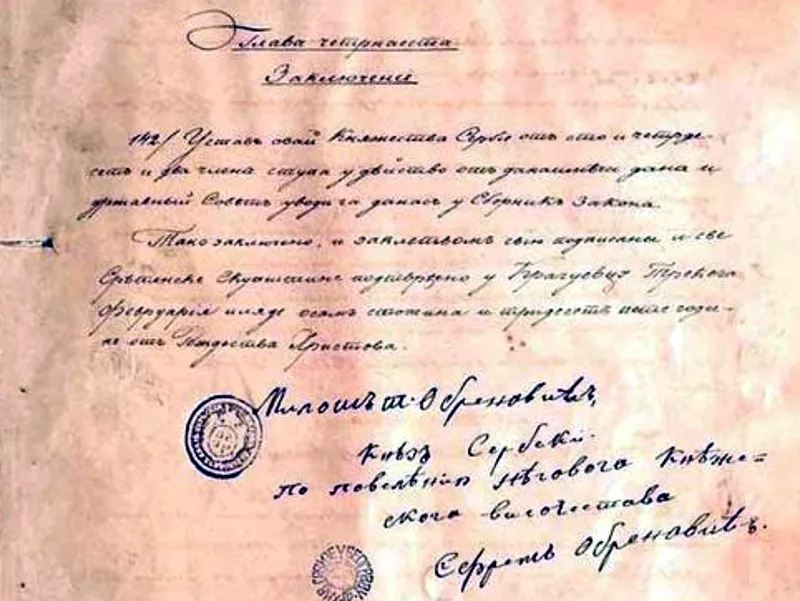 Глава четрнаеста
Заключенiе
142/ Уставъ овай Княжества Србiе отъ сто и четрде-
сетъ и два члена ступа у дѣйство отъ данашнѣгъ дана и
државный Совѣтъ уводи га данасъ у Сборникъ Закона.
Тако заключено, и заклетвомъ свiю подписаны и све
Срѣтенске Скупштине подтврђено у Крагуевцу Трећега
февруарiя иляде осамъ стотина и тридесетъ пете годи-
не отъ Рождества Христова.
Милошъ т. Обреновићъ,
Князъ Сербскiй.
По повелѣнiю нѣговога Княже-
скога височества
Ефремъ Обреновићъ.